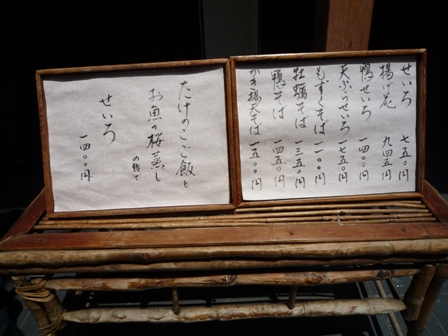 せいろ 七五〇円
揚げ花 九四五円
鴨せいろ 一四〇〇円
天ぷらせいろ 一七五〇円
もずくそば 一一〇〇円
牡蠣そば 一三五〇円
鴨そば 一四五〇円
かき揚天そば 一五〇〇円
たけのこご飯と
お魚の桜蒸し
せいろ 一四〇〇円